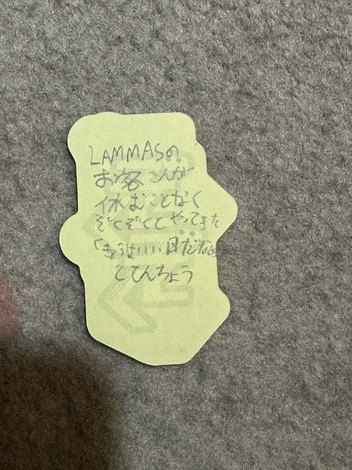 LAMMASの
お客さんが
休むことなく
ぞくぞくとやってきた
「きょうはいい日だなぁ」
とてんちょう